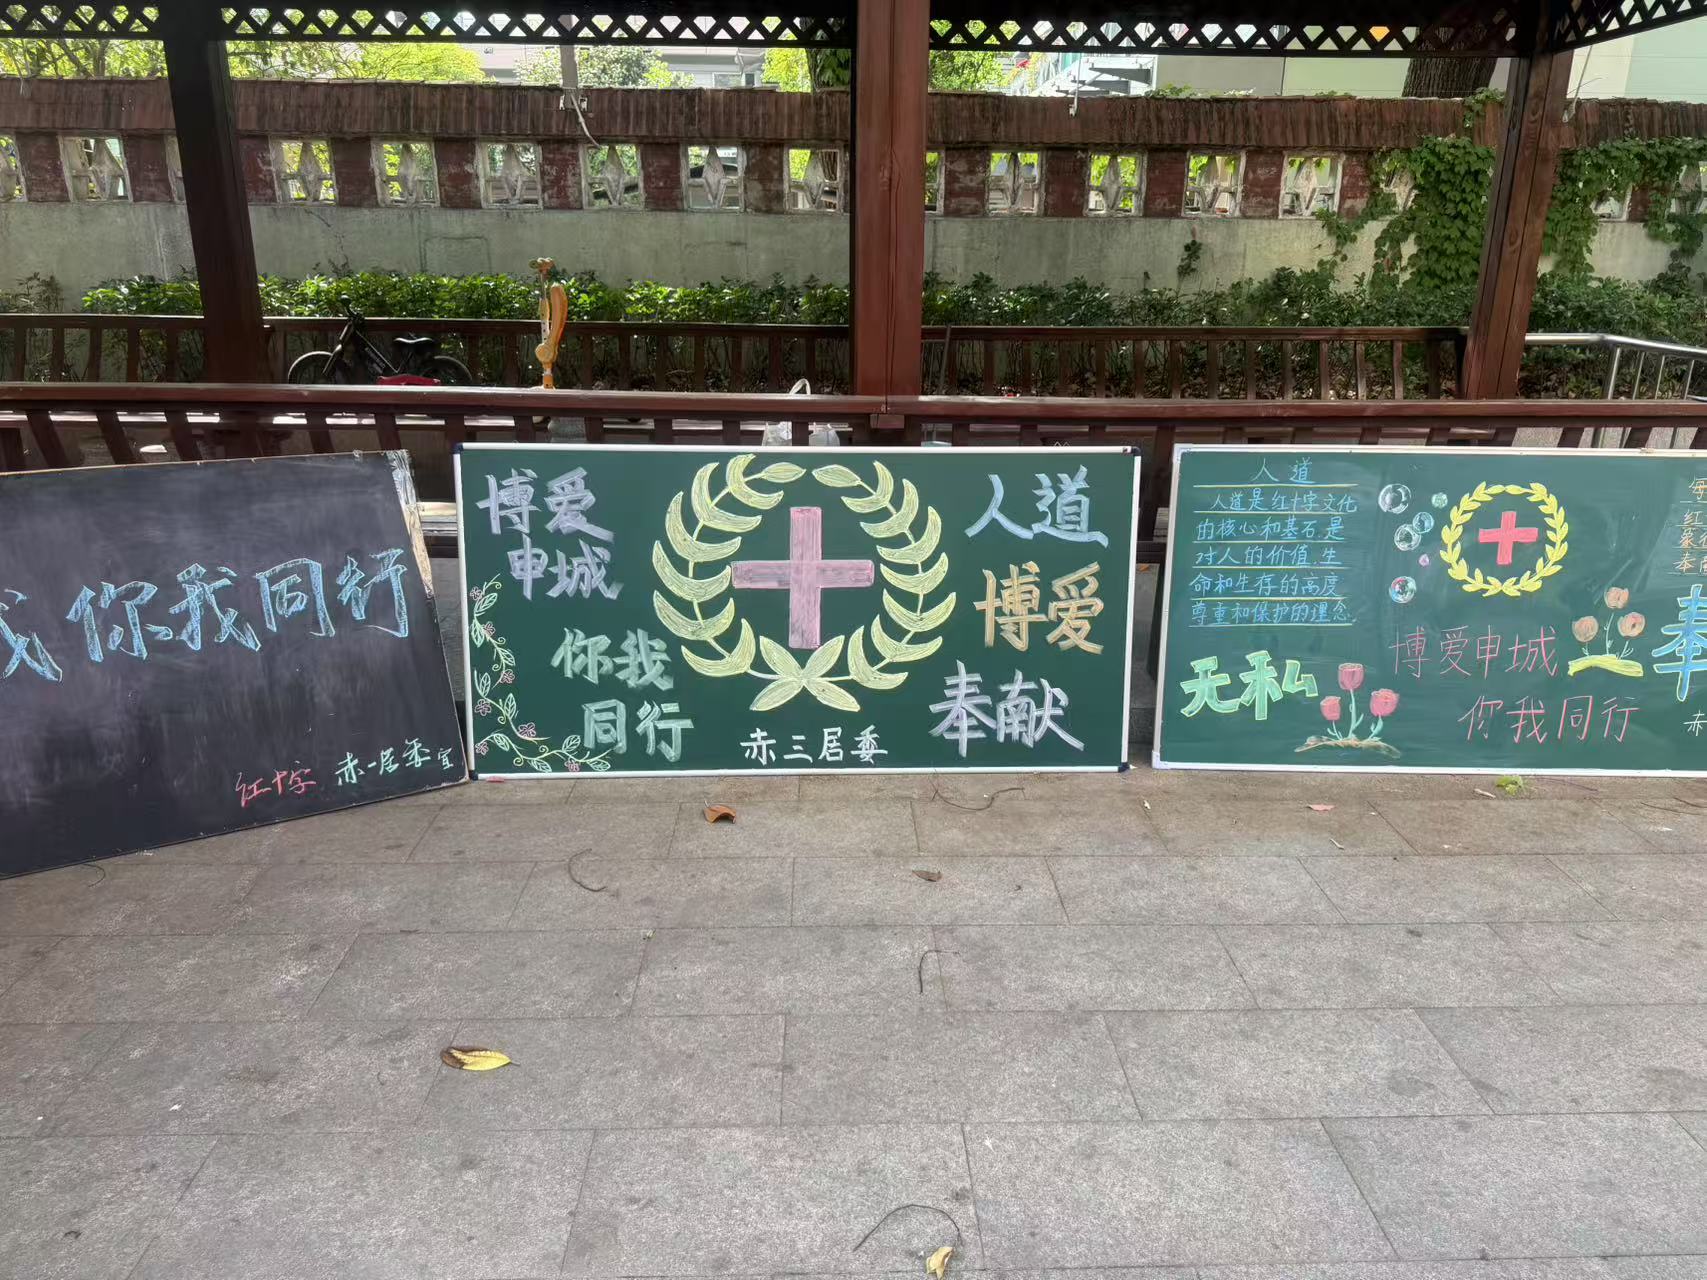 你我同行
红十字 赤一居委宣
博爱
申城
你我
同行
赤三居委
人道
博爱
奉献
人道
人道是红十字文化
的核心和基石,是
对人的价值、生
命和生存的高度
尊重和保护的理念.
无私
博爱申城
你我同行
红
奉
赤